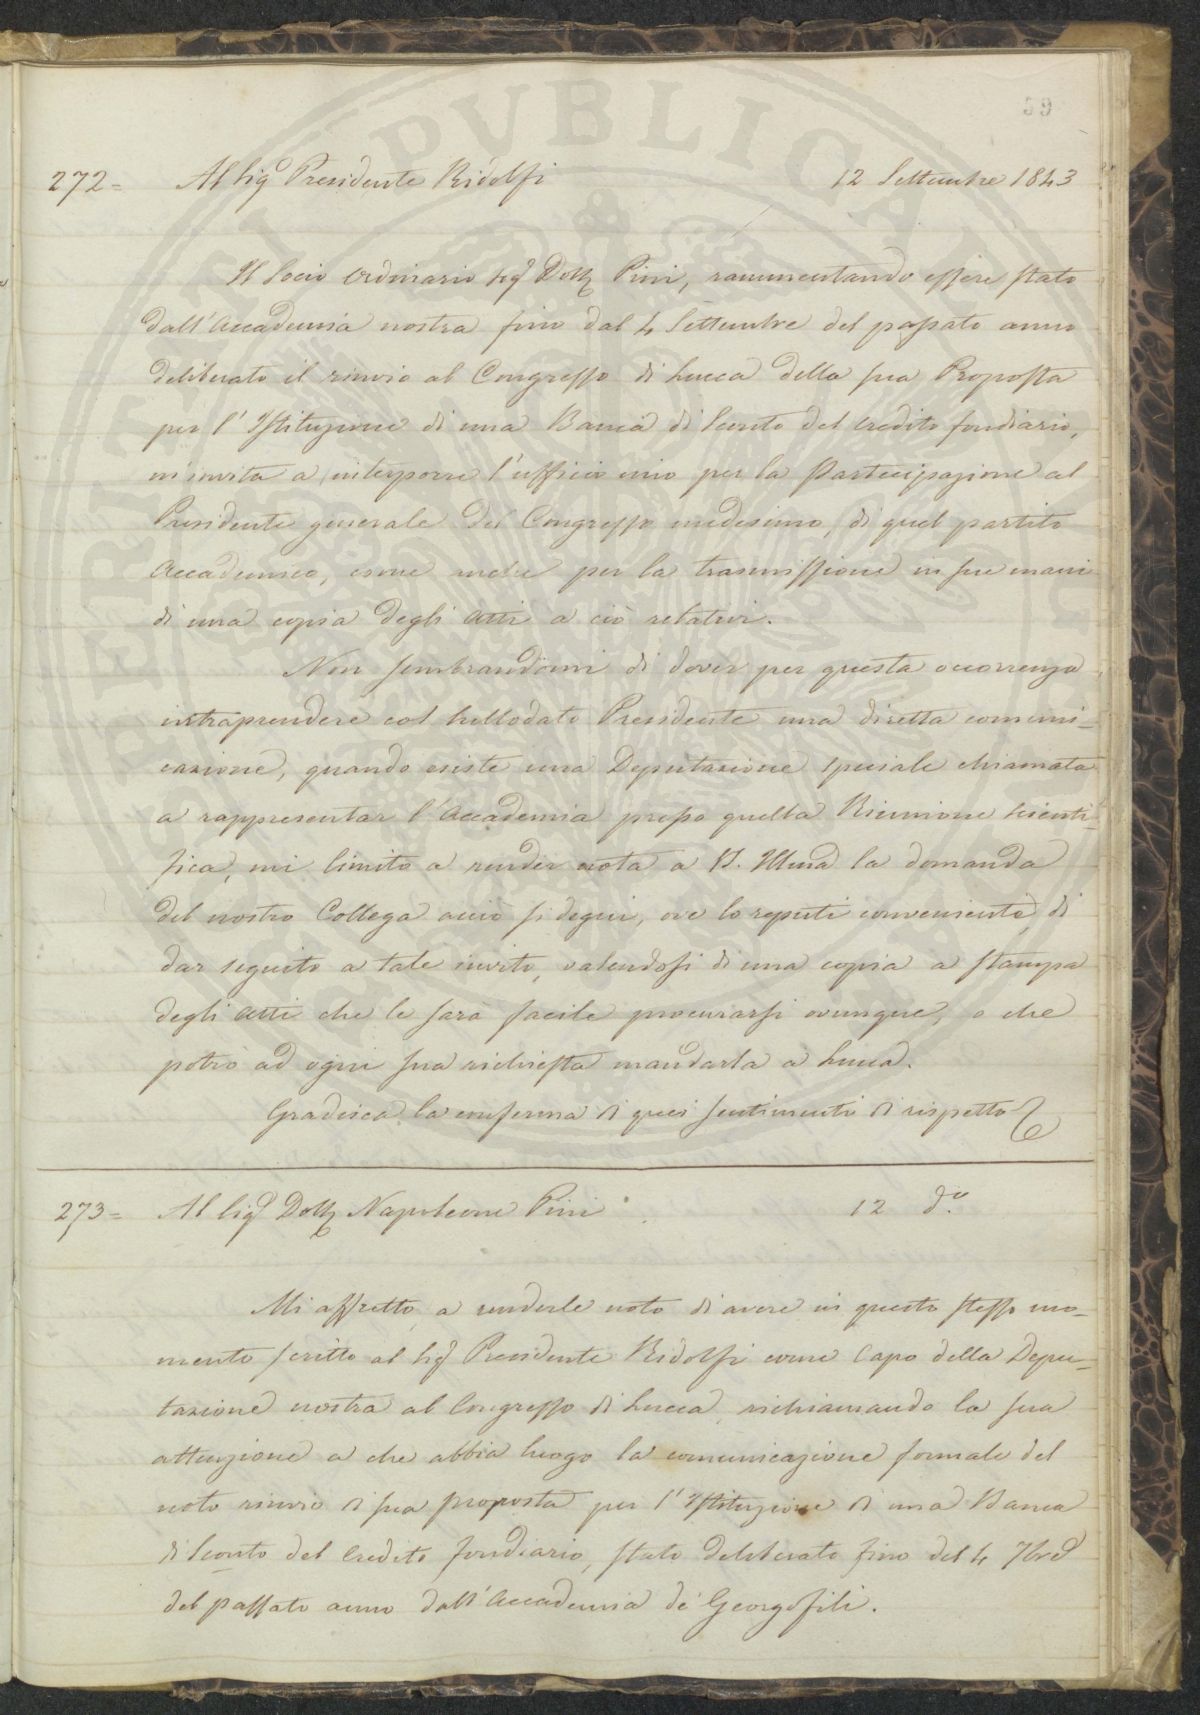 59
272= Al Sigr Presidente Ridolfi 12 Settembre 1843
Il Socio Ordinario Sigr Dottr Pini, rammentando essere stato
dall'Accademia nostra fino dal 4 Settembre del passato anno
deliberato il rinvio al Congresso di Lucca della sua Proposta
per l'Istituzione di una Banca di Sconto del Credito fondiario,
m'invita a interporre l'ufficio mio per la Partecipazione al
Presidente generale del Congresso medesimo, di quel partito
Accademico, come anche per la trasmissione in sue mani
di una copia degli Atti a ciò relativi.
Non sembrandomi di dover per questa occorrenza
intraprendere col sullodato Presidente una diretta comuni-
cazione, quando esiste una Deputazione speciale chiamata
a rappresentar l'Accademia presso quella Riunione Scienti-
fica, mi limito a render nota a V. S. Illma la domanda
del nostro Collega acciò si degni, ove lo reputi conveniente, di
dar seguito a tale invito, valendosi di una copia a stampa
degli Atti che le sarà facile procurarsi ovunque, o che
potrò ad ogni sua richiesta mandarla a Lucca.
Gradisca la conferma di quei sentimenti di rispetto
273= Al Sigr Dottr Napoleone Pini 12 do.
Mi affretto a renderle noto di avere in questo stesso mo-
mento scritto al Sigr Presidente Ridolfi come Capo della Depu-
tazione nostra al Congresso di Lucca, richiamando la sua
attenzione a che abbia luogo la comunicazione formale del
noto rinvio di sua proposta per l'Istituzione di una Banca
di Sconto del Credito fondiario, stato deliberato fino del 4 7bre
del passato anno dall'Accademia de' Georgofili.